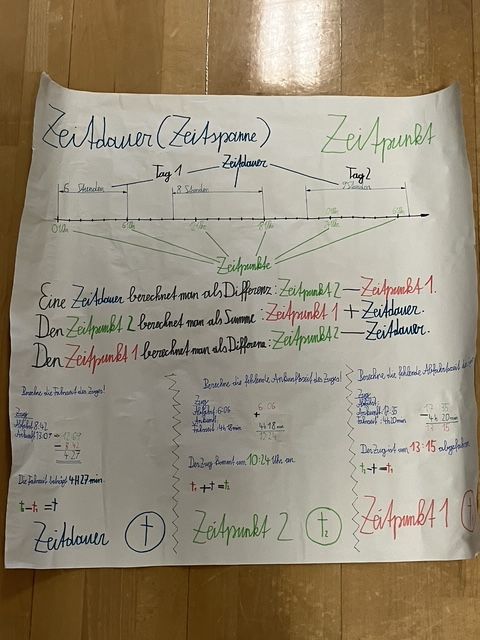 Zeitdauer (Zeitspanne)
Zeitpunkt
Tag 1
Zeitdauer
Tag 2
6 Stunden
8 Stunden
9 Stunden
0 Uhr
6 Uhr
12 Uhr
18 Uhr
0 Uhr
6 Uhr
Zeitpunkte
Eine Zeitdauer berechnet man als Differenz: Zeitpunkt 2 — Zeitpunkt 1.
Den Zeitpunkt 2 berechnet man als Summe: Zeitpunkt 1 + Zeitdauer.
Den Zeitpunkt 1 berechnet man als Differenz: Zeitpunkt 2 — Zeitdauer.
Berechne die Fahrzeit des Zuges!
Zug:
Abfahrt: 8:42
Ankunft: 13:09
- 8:42
4:27
Die Fahrzeit beträgt 4H 27 min.
t₂-t₁ = t
Zeitdauer
t
Berechne die fehlende Ankunftszeit des Zuges!
Zug:
Abfahrt: 6:06
Ankunft:
Fahrzeit: 4h 18 min
6:06
+
4h 18 min
10:24
Der Zug kommt um 10:24 Uhr an
t₁+t=t₂
Zeitpunkt 2
t₂
Berechne die fehlende Abfahrtszeit
Zug:
Abfahrt:
Ankunft: 17:35
Fahrzeit: 4h 20min
17:35
- 4h 20min
13 15
Der Zug ist um 13:15 abgefahren
t₂-t=t₁
Zeitpunkt 1
t